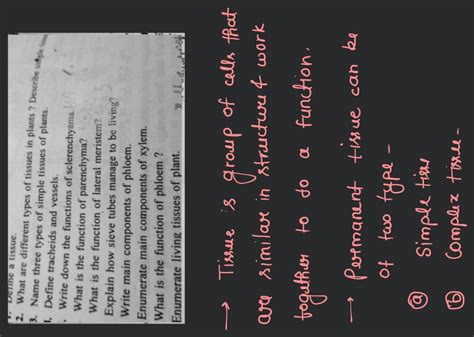 1. Define a tissue.
2. What are different types of tissues in plants ? Describe simple tissue
3. Name three types of simple tissues of plants.
Define tracheids and vessels.
Write down the functions of sclerenchyma.
What is the function of parenchyma?
What is the function of lateral meristem?
Explain how sieve tubes manage to be living?
Write main components of phloem.
Enumerate main components of xylem.
What is the function of phloem ?
Enumerate living tissues of plant.
→ Tissue is group of cells that
are similar in structure & work
together to do a function.
→ Permanent tissue can be
of two type -
ⓐ Simple tissu
ⓑ Complex tissue-